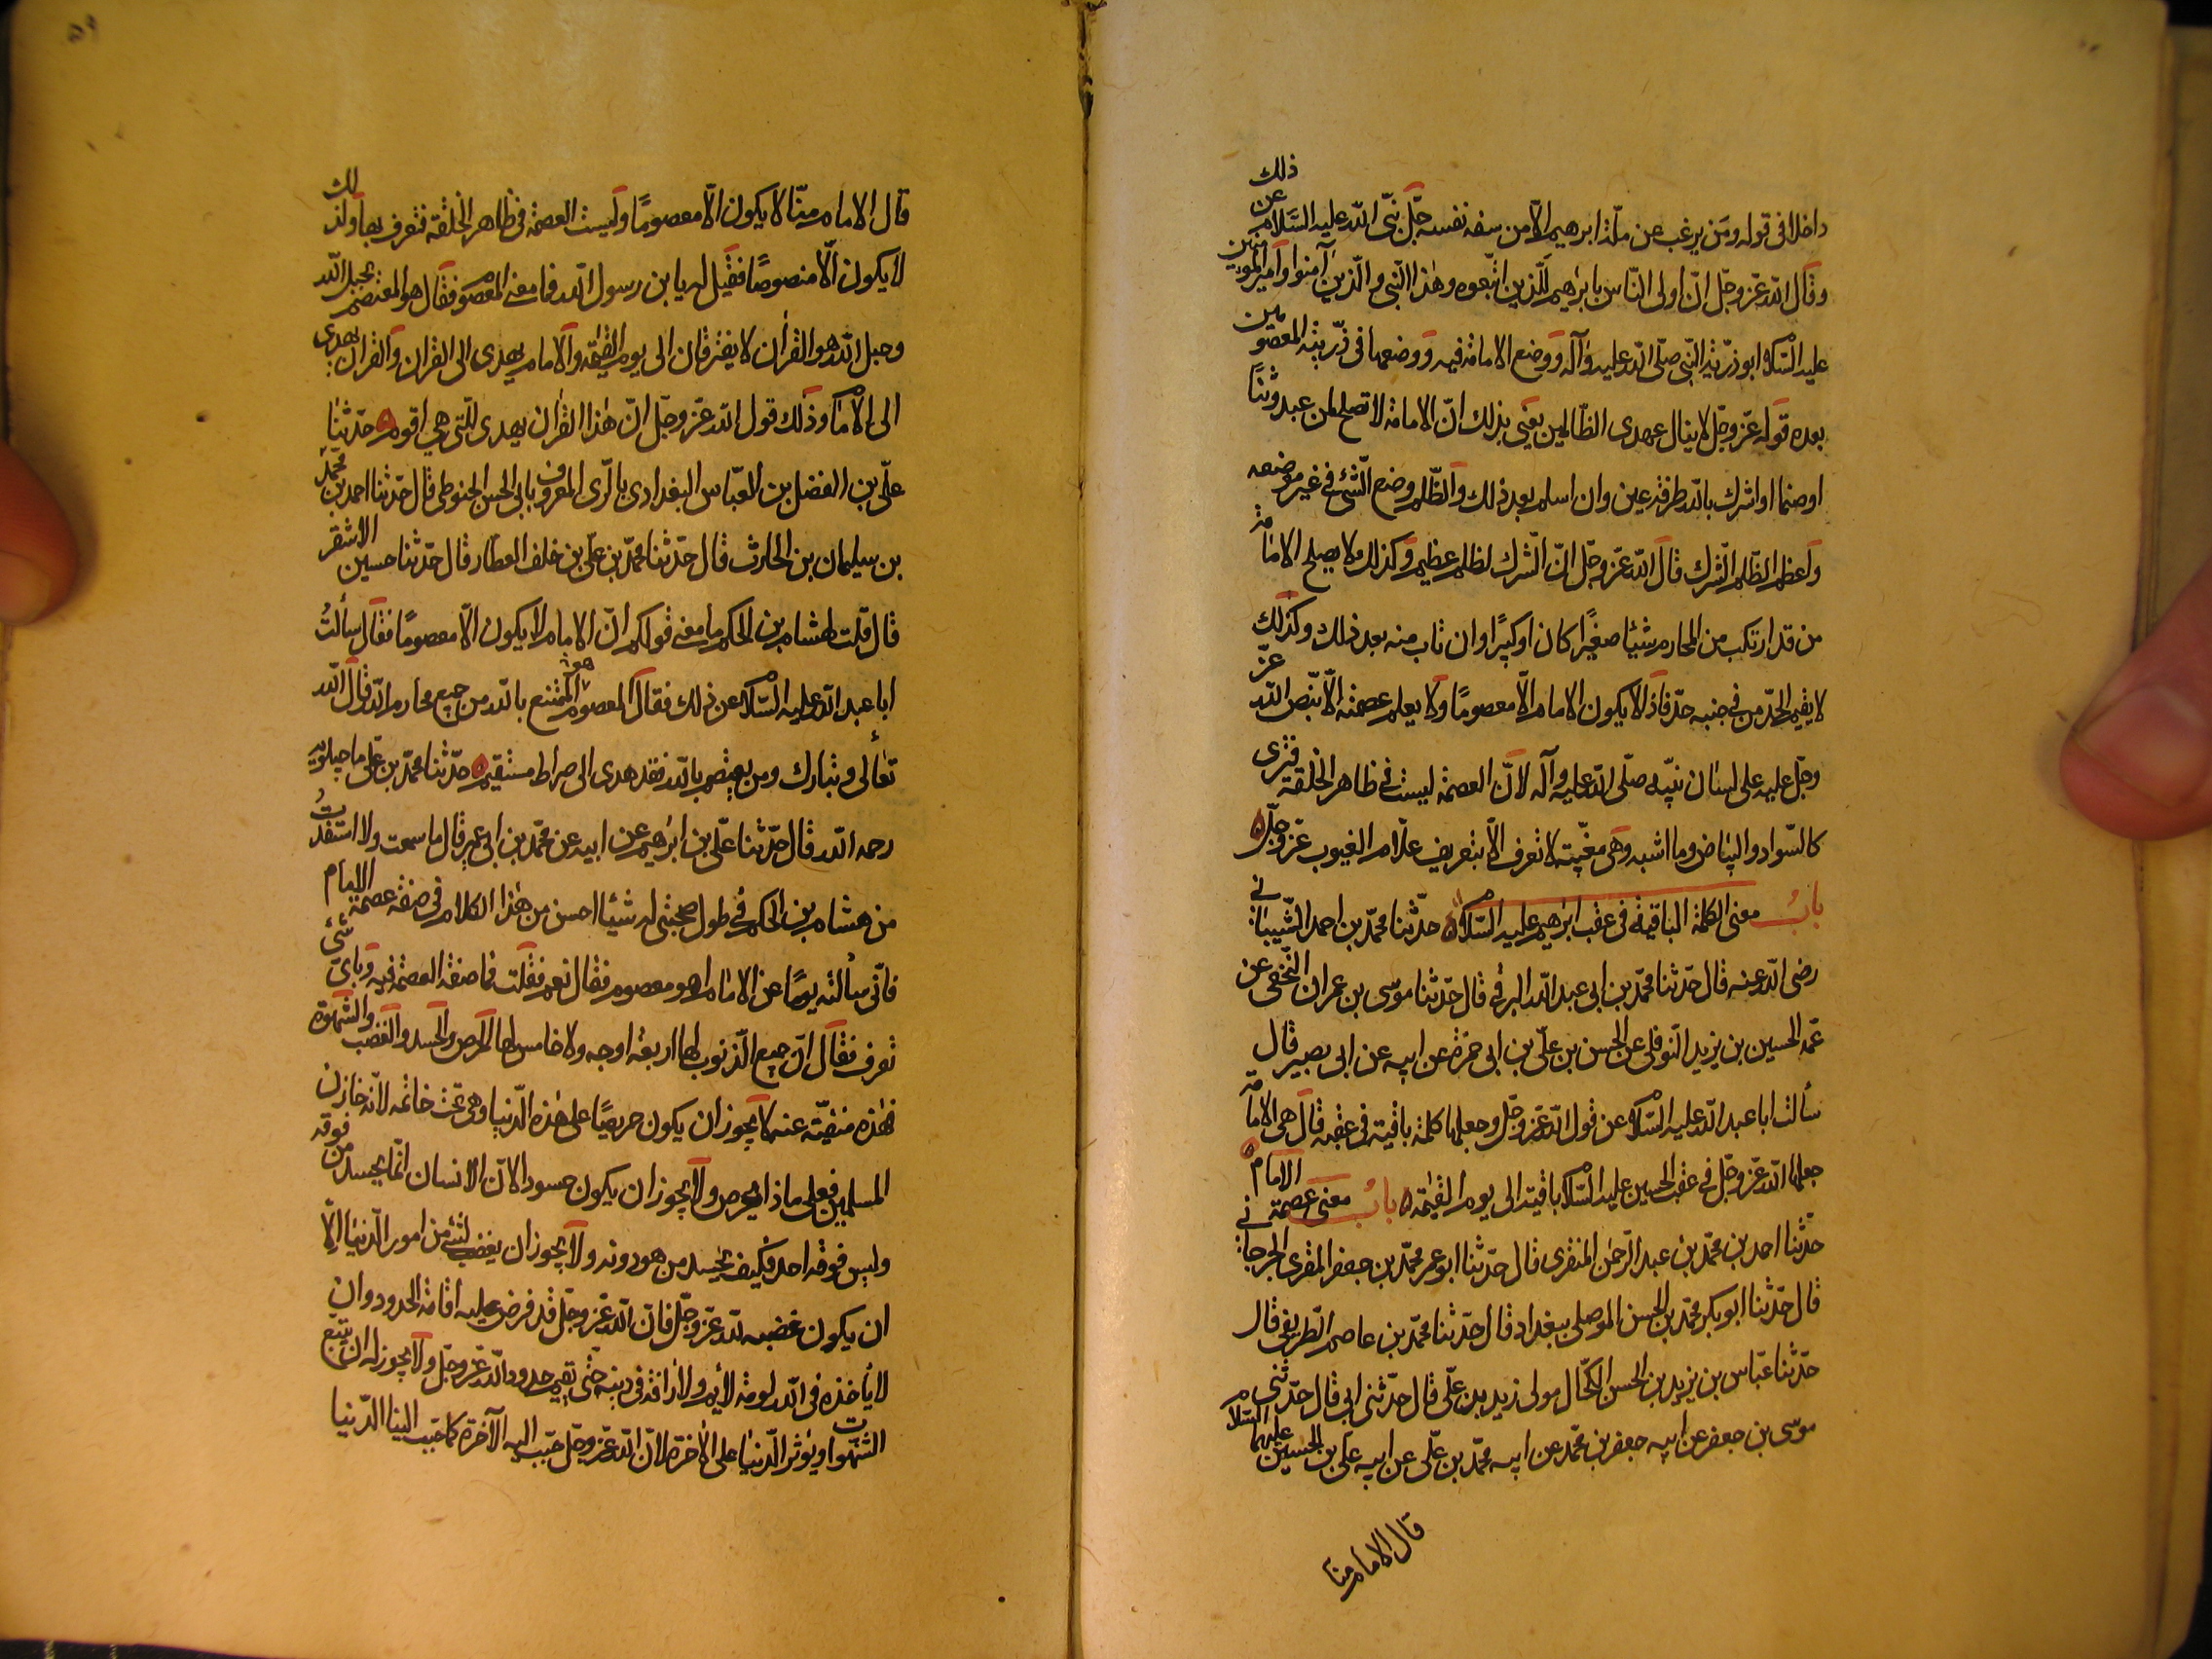 داخلا فى قوله ومن يرغب عن ملّة ابرهيم الّا من سفه نفسه جلّ نبىّ الله عليه السّلام عن ذلك
وقال الله عزّوجلّ انّ اولى النّاس بابرهيم للّذين اتّبعوه وهذا النّبى والّذين آمنوا وامير المومنين
عليه السّلام ابو ذرّية النّبى صلّى الله عليه وآله ووضع الامامة فيه ووضعها فى ذرّيته المعصومين
بعده قوله عزّوجلّ لا ينال عهدى الظّالمين يعنى بذلك انّ الامامة لا تصلح لمن عبد وثناً
او صنما او اشرك بالله طرفة عين وان اسلم بعد ذلك والظّلم وضع الشّئ فى غير موضعه
واعظم الظّلم الشّرك قال الله عزّوجلّ انّ الشّرك لظلم عظيم وكذلك لا يصلح الامامة
من قد ارتكب من المحارم شيئا صغيرًا كان او كبيرًا وان تاب منه بعد ذلك وكذلك
لا يقيم الحدّ من فى جنبه حدّ فاذا لا يكون الامام الّا معصومًا ولا يعلم عصمته الّا بنصّ الله عزّ
وجلّ عليه على لسان نبيّه صلّى الله عليه وآله لانّ العصمة ليست فى ظاهر الخلقة فترى
كالسّواد والبياض وما اشبه وهى مغيّبة لا تعرف الّا بتعريف علّام الغيوب عزّوجلّ
بابُ معنى الكلمة الباقية فى عقب ابرهيم عليه السّلام حدّثنا محمّد بن احمد الشّيبانى
رضى الله عنه قال حدّثنا محمّد بن ابى عبد الله البرقى قال حدّثنا موسى بن عمران النّخعى عن
عمّه الحسين بن يزيد النّوفلى عن الحسن بن علىّ بن ابى حمزة عن ابيه عن ابى بصير قال
سألت ابا عبد الله عليه السّلام عن قول الله عزّوجلّ وجعلها كلمة باقية فى عقبه قال هى الامامة
جعلها الله عزّوجلّ فى عقب الحسين عليه السّلام باقية الى يوم القيمة بابُ معنى عصمة الامام
حدّثنا احمد بن محمّد بن عبد الرّحمن المنقرى قال حدّثنا ابو عمر محمّد بن جعفر المقرى الجرجانى
قال حدّثنا ابو بكر محمّد بن الحسن الموصلى ببغداد قال حدّثنا محمّد بن عاصم الطّريفى قال
حدّثنا عبّاس بن يزيد بن الحسن الكحّال مولى زيد بن علّى قال حدّثنى ابى قال حدّثنى
موسى بن جعفر عن ابيه جعفر بن محمّد عن ابيه محمّد بن علّى عن ابيه علىّ بن الحسين عليهم السّلام
قال الامام منا
٥٩
قال الامام منّا لا يكون الّا معصومًا وليست العصمة فى ظاهر الخلقة فتعرف بها ولذلك
لا يكون الّا منصوصًا فقيل له يا بن رسول الله فما معنى المعصوم فقال هو المعتصم بحبل الله
وحبل الله هو القرآن لا يفترقان الى يوم القيمة والامام يهدى الى القران والقرآن يهدى
الى الامام وذلك قول الله عزّوجلّ انّ هذا القرآن يهدى للّتى هى اقوم حدّثنا
علّى بن الفضل بن العبّاس البغدادى بالرّى المعروف بابى الحسن الحنوطى قال حدّثنا احمد بن محمّد
بن سليمان بن الحارث قال حدّثنا محمّد بن علّى بن خلف العطّار قال حدّثنا حسين الاشقر
قال قلت لهشام بن الحكم ما معنى قولكم انّ الامام لا يكون الّا معصومًا فقال سألتُ
ابا عبد الله عليه السّلام عن ذلك فقال المعصوم هو الممتنع بالله من جميع محارم الله قال الله
تعالى وتبارك ومن يعتصم بالله فقد هدى الى صراط مستقيم حدّثنا محمّد بن علّى ماجيلويه
رحمه الله قال حدّثنا علّى بن ابرهيم عن ابيه عن محمّد بن ابى عمير قال ما سمعت ولا استفدتُ
من هشام بن الحكم فى طول صحبتى له شيئا احسن من هذا الكلام فى صفة عصمة الامام
فانّى سألته يومًا عن الامام اهو معصوم فقال نعم فقلت فما صفة العصمة فيه وباىّ شئ
تعرف فقال انّ جميع الذّنوب لها اربعة اوجه ولا خامس لها الحرص والحسد والغضب والشّهوة
فهذه منفيّة عنه لا يجوز ان يكون حريصًا على هذه الدّنيا وهى تحت خاتمه لانّه خازن
المسلمين فعلى ماذا يحرص ولا يجوز ان يكون حسودا لانّ الانسان انّما يحسد من فوقه
وليس فوقه احد فكيف يحسد من هو دونه ولا يجوز ان يغضب لشئ من امور الدّنيا الّا
ان يكون غضبه لله عزّوجلّ فانّ الله عزّوجلّ قد فرض عليه اقامة الحدود وان
لا يأخذه فى الله لومة لايم ولا رأفة فى دينه حتّى يقيم حدود الله عزّوجلّ ولا يجوز له ان يتبع
الشّهوات ويؤثر الدّنيا على الآخرة لانّ الله عزّوجلّ حبّب اليه الآخرة كما حبّب الينا الدّنيا